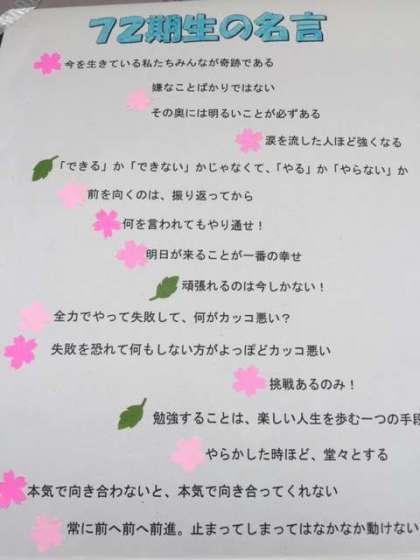 72期生の名言
今を生きている私たちみんなが奇跡である
嫌なことばかりではない
その奥には明るいことが必ずある
涙を流した人ほど強くなる
「できる」か「できない」かじゃなくて、「やる」か「やらない」か
前を向くのは、振り返ってから
何を言われてもやり通せ！
明日が来ることが一番の幸せ
頑張れるのは今しかない！
全力でやって失敗して、何がカッコ悪い？
失敗を恐れて何もしない方がよっぽどカッコ悪い
挑戦あるのみ！
勉強することは、楽しい人生を歩む一つの手段
やらかした時ほど、堂々とする
本気で向き合わないと、本気で向き合ってくれない
常に前へ前へ前進。止まってしまってはなかなか動けない